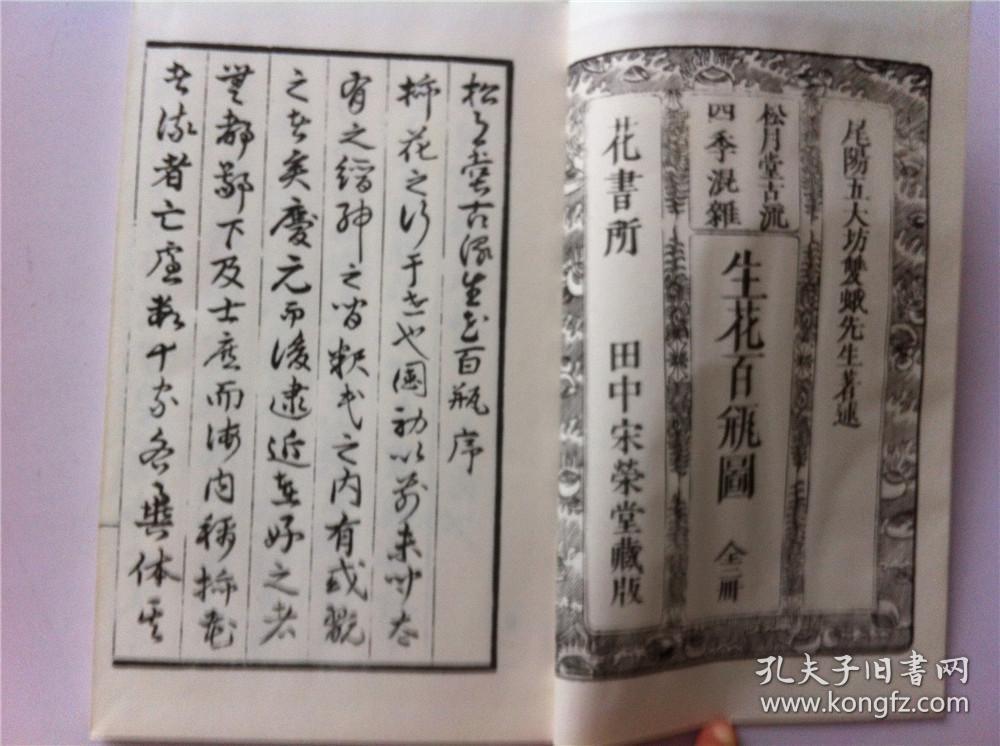 尾陽五大坊雙蛾先生著述
松月堂古流
四季混雜
生花百瓶圖 全二冊
花書所 田中宋榮堂藏版
松月堂古流生花百瓶序
挿花之行于世也國初以前未聞太
有之縉紳之間釈氏之内有或翫
之者矣慶元而後逮近好之者
無都鄙下及士庶而海内称挿花
者流者亡慮数十家各異体其
孔夫子旧书网
www.kongfz.com